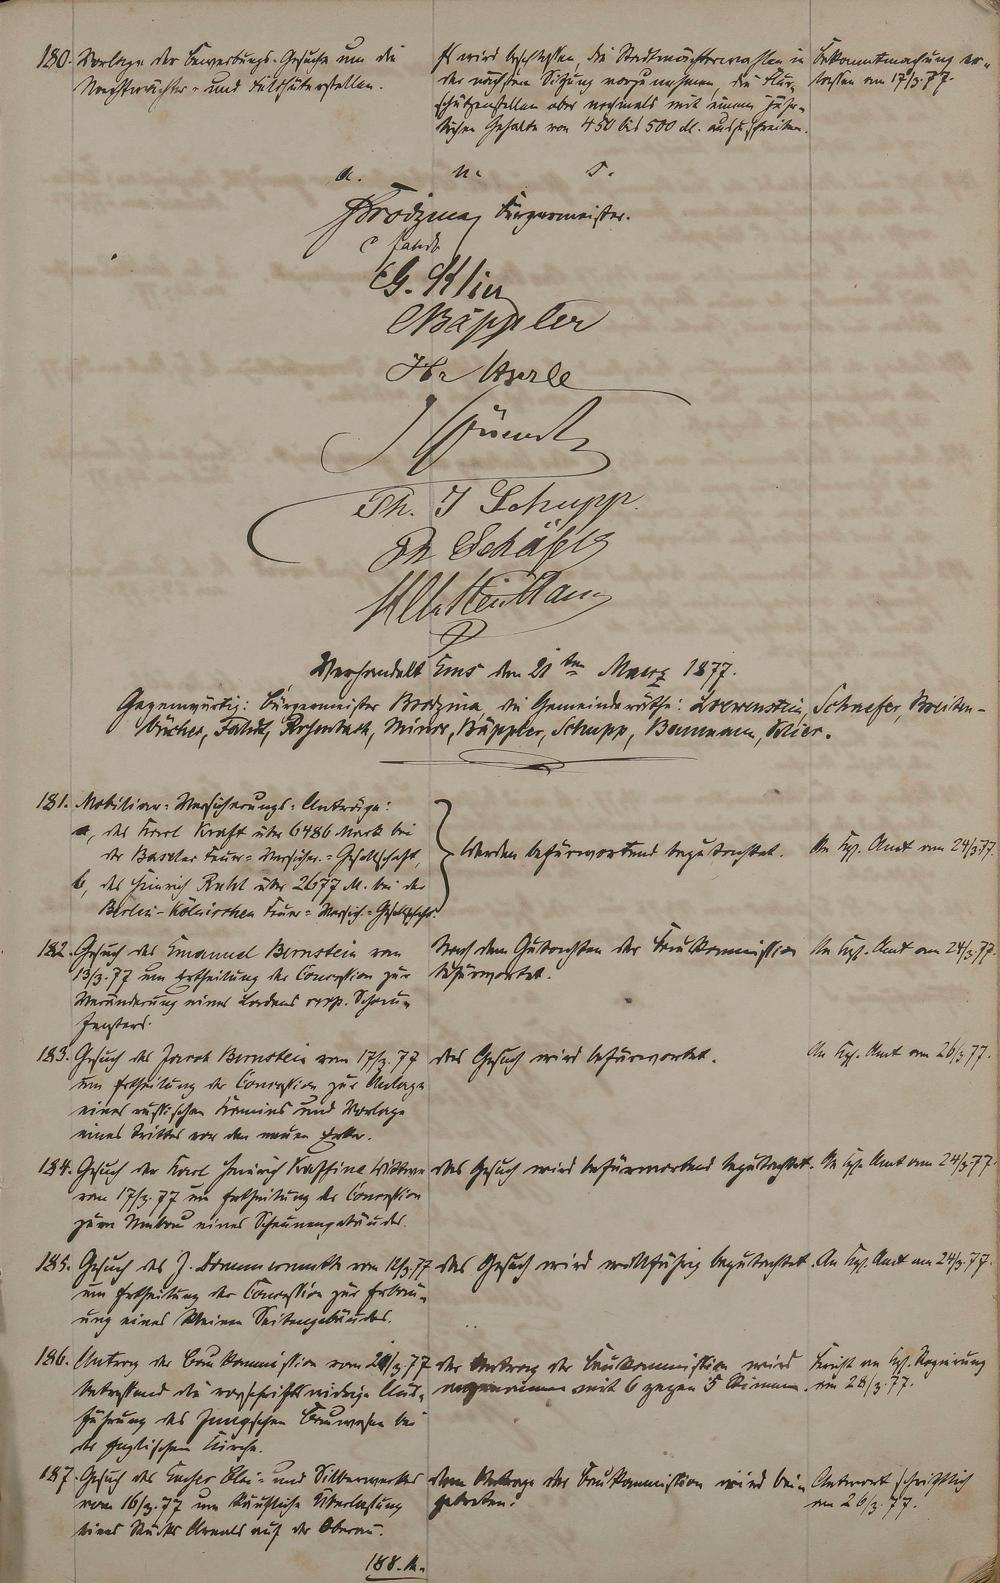 180. Vorlage der Bewerbungs-Gesuche um die
Nachtwächter- und Feldhüterstellen.
Es wird beschlossen, die Nachtwächterwahlen in
der nächsten Sitzung vorzunehmen, die Flur-
schützenstellen aber nochmals mit einem jähr-
lichen Gehalte von 450 bis 500 M. auszuschreiben.
Bekanntmachung er-
lassen am 17/3.77.
a. u. s.
Bürgermeister.
G. Klier
Bäppler
Th. J Schupp
Ph Schäfer
Verhandelt Ems den 21ten Maerz 1877.
Gegenwärtig: Bürgermeister die Gemeinderäthe: Loewenstein, Schaefer, Breiten-
bücher, Bäppler, Schupp, Baumann, Klier.
181. Mobiliar-Versicherungs-Anträge:
a, des Karl Kraft über 6486 Mark bei
der Baseler Feuer-Versicher.-Gesellschaft,
b, des Heinrich Ruhl über 2677 M. bei der
Berlin-Kölnischen Feuer-Versich.-Gesellschaft.
Werden befürwortend begutachtet.
An Kgl. Amt am 24/3.77.
182. Gesuch des Emanuel Bernstein vom
13/3.77 um Ertheilung der Concession zur
Veränderung eines Ladens resp. Schau-
fensters.
Nach dem Gutachten der Baukommission
befürwortet.
An Kgl. Amt am 24/3.77.
183. Gesuch des Jacob Bernstein vom 17/3.77
um Ertheilung der Concession zur Anlage
eines russischen Kamins und Vorlage
eines Trittes vor den neuen Erker.
das Gesuch wird befürwortet.
An Kgl. Amt am 26/3.77.
184. Gesuch der Karl Heinrich Wittwe
vom 17/3.77 um Ertheilung der Concession
zum Umbau eines Scheunengebäudes.
das Gesuch wird befürwortend begutachtet.
An Kgl. Amt am 24/3.77.
185. Gesuch des J. vom 12/3.77
um Ertheilung der Concession zur Erbau-
ung eines kleinen Seitengebäudes.
das Gesuch wird willfährig begutachtet.
An Kgl. Amt am 24/3.77.
186. Antrag der Baukommission vom 77
betreffend die vorschriftswidrige Aus-
führung des Jung'schen Bauwesens bei
der englischen Kirche.
der Antrag der Baukommission wird
angenommen mit 6 gegen 5 Stimmen.
Bericht an Kgl. Regierung
am 28/3.77.
187. Gesuch des Emser Blei- und Silberwerkes
vom 16/3.77 um käufliche Überlassung
eines Stücks Areals auf der Oberau.
dem Antrage der Baukommission wird bei-
getreten.
Antwort schriftlich
am 26/3.77.